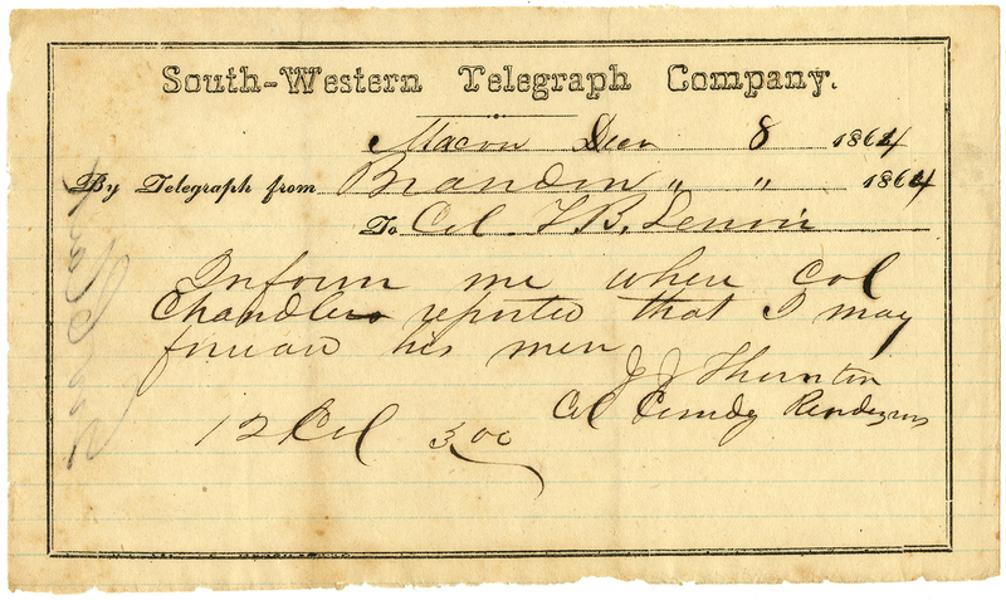 South-Western Telegraph Company.
Macon Decr 8 1864
By Telegraph from Brandon " " 1864
To Col. T. B.
Inform me where Col
Chandler reported that I may
forward his men
J J Thornton
Col Comdg Rendezvous
12 Col 300